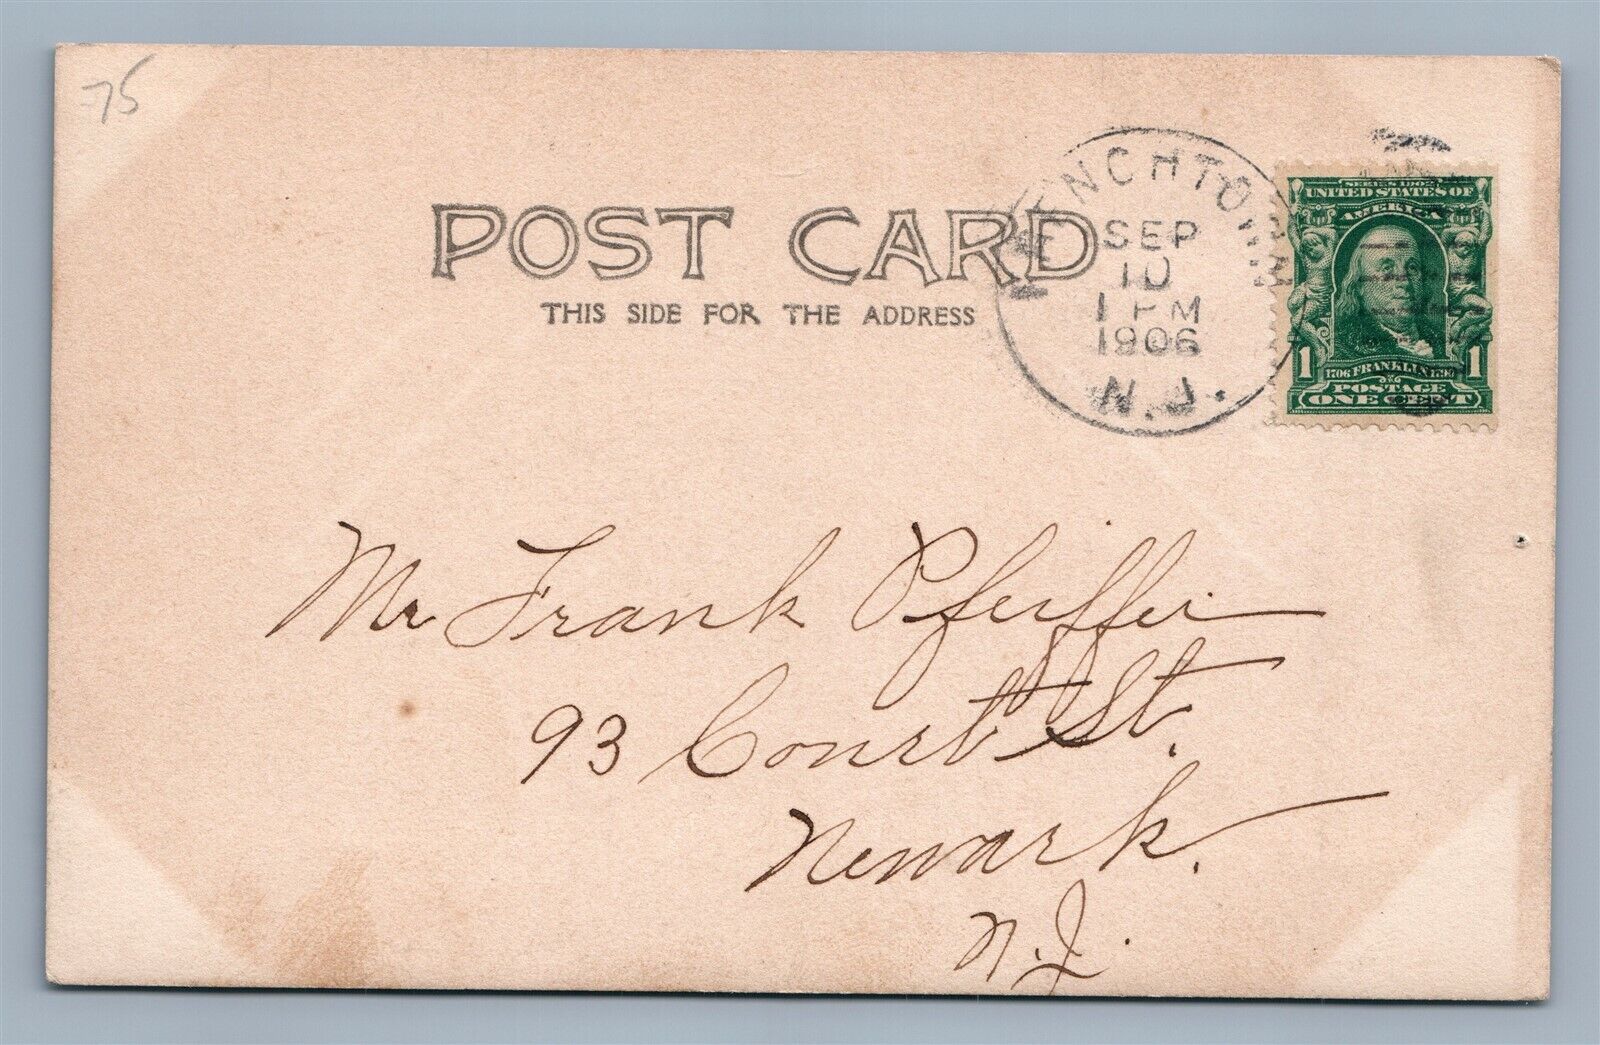 75
POST CARD
THIS SIDE FOR THE ADDRESS
FRENCHTOWN
SEP
10
1 PM
1906
N.J.
SERIES 1902
UNITED STATES OF
AMERICA
1 1706 FRANKLIN 1790 1
POSTAGE
ONE CENT
Mr Frank Pfeiffer
93 Court St.
Newark.
N.J.